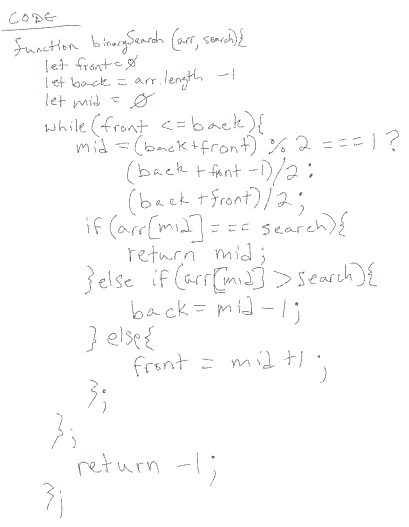 CODE
function binarySearch (arr, search){
let front = 0
let back = arr.length -1
let mid = 0
while (front <= back){
mid = (back+front) % 2 === 1 ?
(back + front -1)/2 :
(back + front)/2;
if (arr[mid] === search){
return mid;
}else if (arr[mid] > search){
back = mid -1;
} else{
front = mid +1;
};
};
return -1;
};